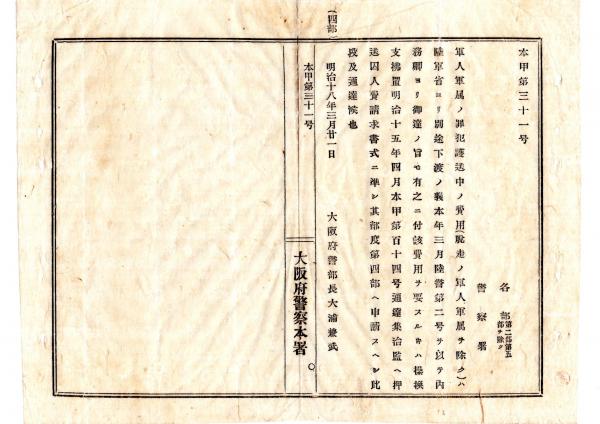 本甲第三十一号
各部第二部第五部ヲ除ク
警察署
軍人軍属ノ罪犯護送中ノ費用(脱走ノ軍人軍属ヲ除ク)ハ
陸軍省ヨリ別途下渡ノ義本年三月陸普第二号ヲ以テ内
務卿ヨリ御達ノ旨モ有之ニ付該費用ヲ要スルキハ操換
支拂置明治十五年四月本甲第百十四号通達集治監ヘ押
送囚人費請求書式ニ準シ其都度第四部ヘ申請スヘシ此
段及通達候也
明治十八年三月廿一日
大阪府警部長大浦兼武
(四部)
本甲第三十一号
大阪府警察本署